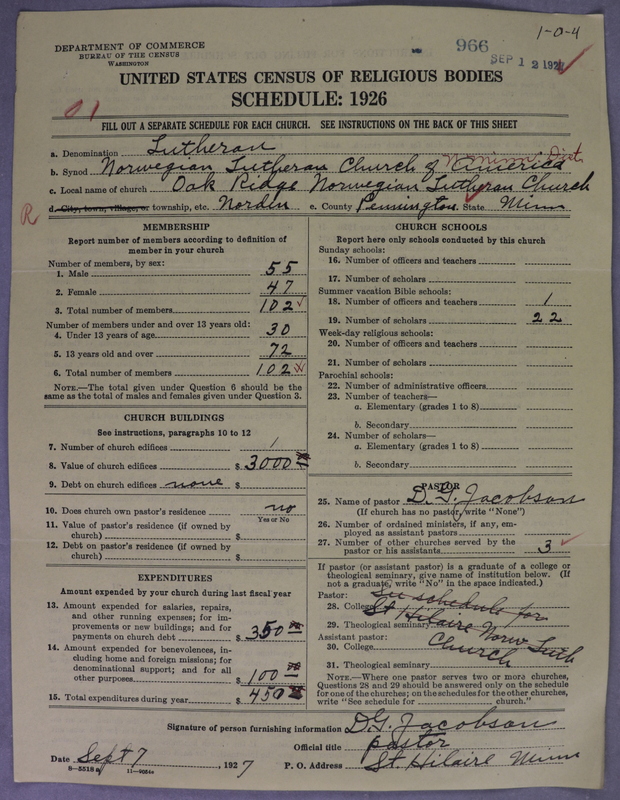 1-0-4
DEPARTMENT OF COMMERCE
BUREAU OF THE CENSUS
WASHINGTON
966
SEP 12 1927
UNITED STATES CENSUS OF RELIGIOUS BODIES
SCHEDULE: 1926
01
FILL OUT A SEPARATE SCHEDULE FOR EACH CHURCH. SEE INSTRUCTIONS ON THE BACK OF THIS SHEET
a. Denomination Lutheran
N. Minn. Dist.
b. Synod Norwegian Lutheran Church of America
c. Local name of church Oak Ridge Norwegian Lutheran Church
R
d. City, town, village, or township, etc. Norden e. County Pennington State Minn
MEMBERSHIP
Report number of members according to definition of
member in your church
Number of members, by sex:
1. Male 55
2. Female 47
3. Total number of members 102
Number of members under and over 13 years old:
4. Under 13 years of age 30
5. 13 years old and over 72
6. Total number of members 102
NOTE.—The total given under Question 6 should be the
same as the total of males and females given under Question 3.
CHURCH BUILDINGS
See instructions, paragraphs 10 to 12
7. Number of church edifices 1
8. Value of church edifices $ 3000 00
9. Debt on church edifices none $
10. Does church own pastor's residence no
Yes or No
11. Value of pastor's residence (if owned by
church) $
12. Debt on pastor's residence (if owned by
church) $
EXPENDITURES
Amount expended by your church during last fiscal year
13. Amount expended for salaries, repairs,
and other running expenses; for im-
provements or new buildings; and for
payments on church debt $ 350 00
14. Amount expended for benevolences, in-
cluding home and foreign missions; for
denominational support; and for all
other purposes $ 100 00
15. Total expenditures during year $ 450 00
CHURCH SCHOOLS
Report here only schools conducted by this church
Sunday schools:
16. Number of officers and teachers
17. Number of scholars
Summer vacation Bible schools:
18. Number of officers and teachers 1
19. Number of scholars 22
Week-day religious schools:
20. Number of officers and teachers
21. Number of scholars
Parochial schools:
22. Number of administrative officers
23. Number of teachers—
a. Elementary (grades 1 to 8)
b. Secondary
24. Number of scholars—
a. Elementary (grades 1 to 8)
b. Secondary
PASTOR
25. Name of pastor D. G. Jacobson
(If church has no pastor, write "None")
26. Number of ordained ministers, if any, em-
ployed as assistant pastors
27. Number of other churches served by the
pastor or his assistants 3
If pastor (or assistant pastor) is a graduate of a college or
theological seminary, give name of institution below. (If
not a graduate, write "No" in the space indicated.)
Pastor: See schedule for
28. College St Hilaire Norw Luth
29. Theological seminary Church
Assistant pastor:
30. College
31. Theological seminary
NOTE.—Where one pastor serves two or more churches,
Questions 28 and 29 should be answered only on the schedule
for one of the churches; on the schedules for the other churches,
write "See schedule for church."
Signature of person furnishing information D. G. Jacobson
Official title pastor
Date Sept 7, 1927 P. O. Address St Hilaire Minn
8-5518 a 11-9054